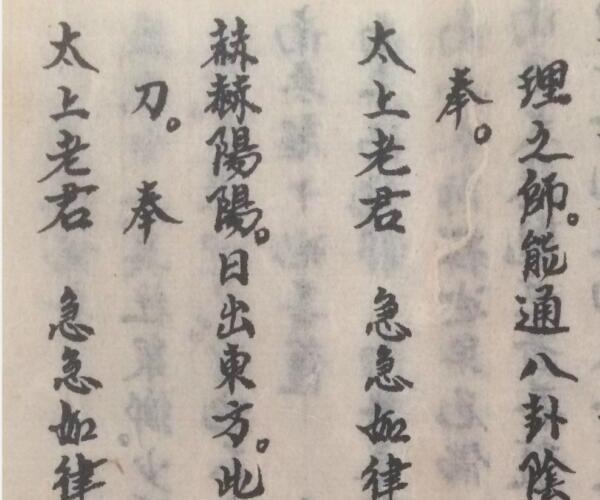 理之師。能通八卦陰
奉。
太上老君 急急如律
赫赫陽陽。日出東方。此
刀。奉
太上老君 急急如律